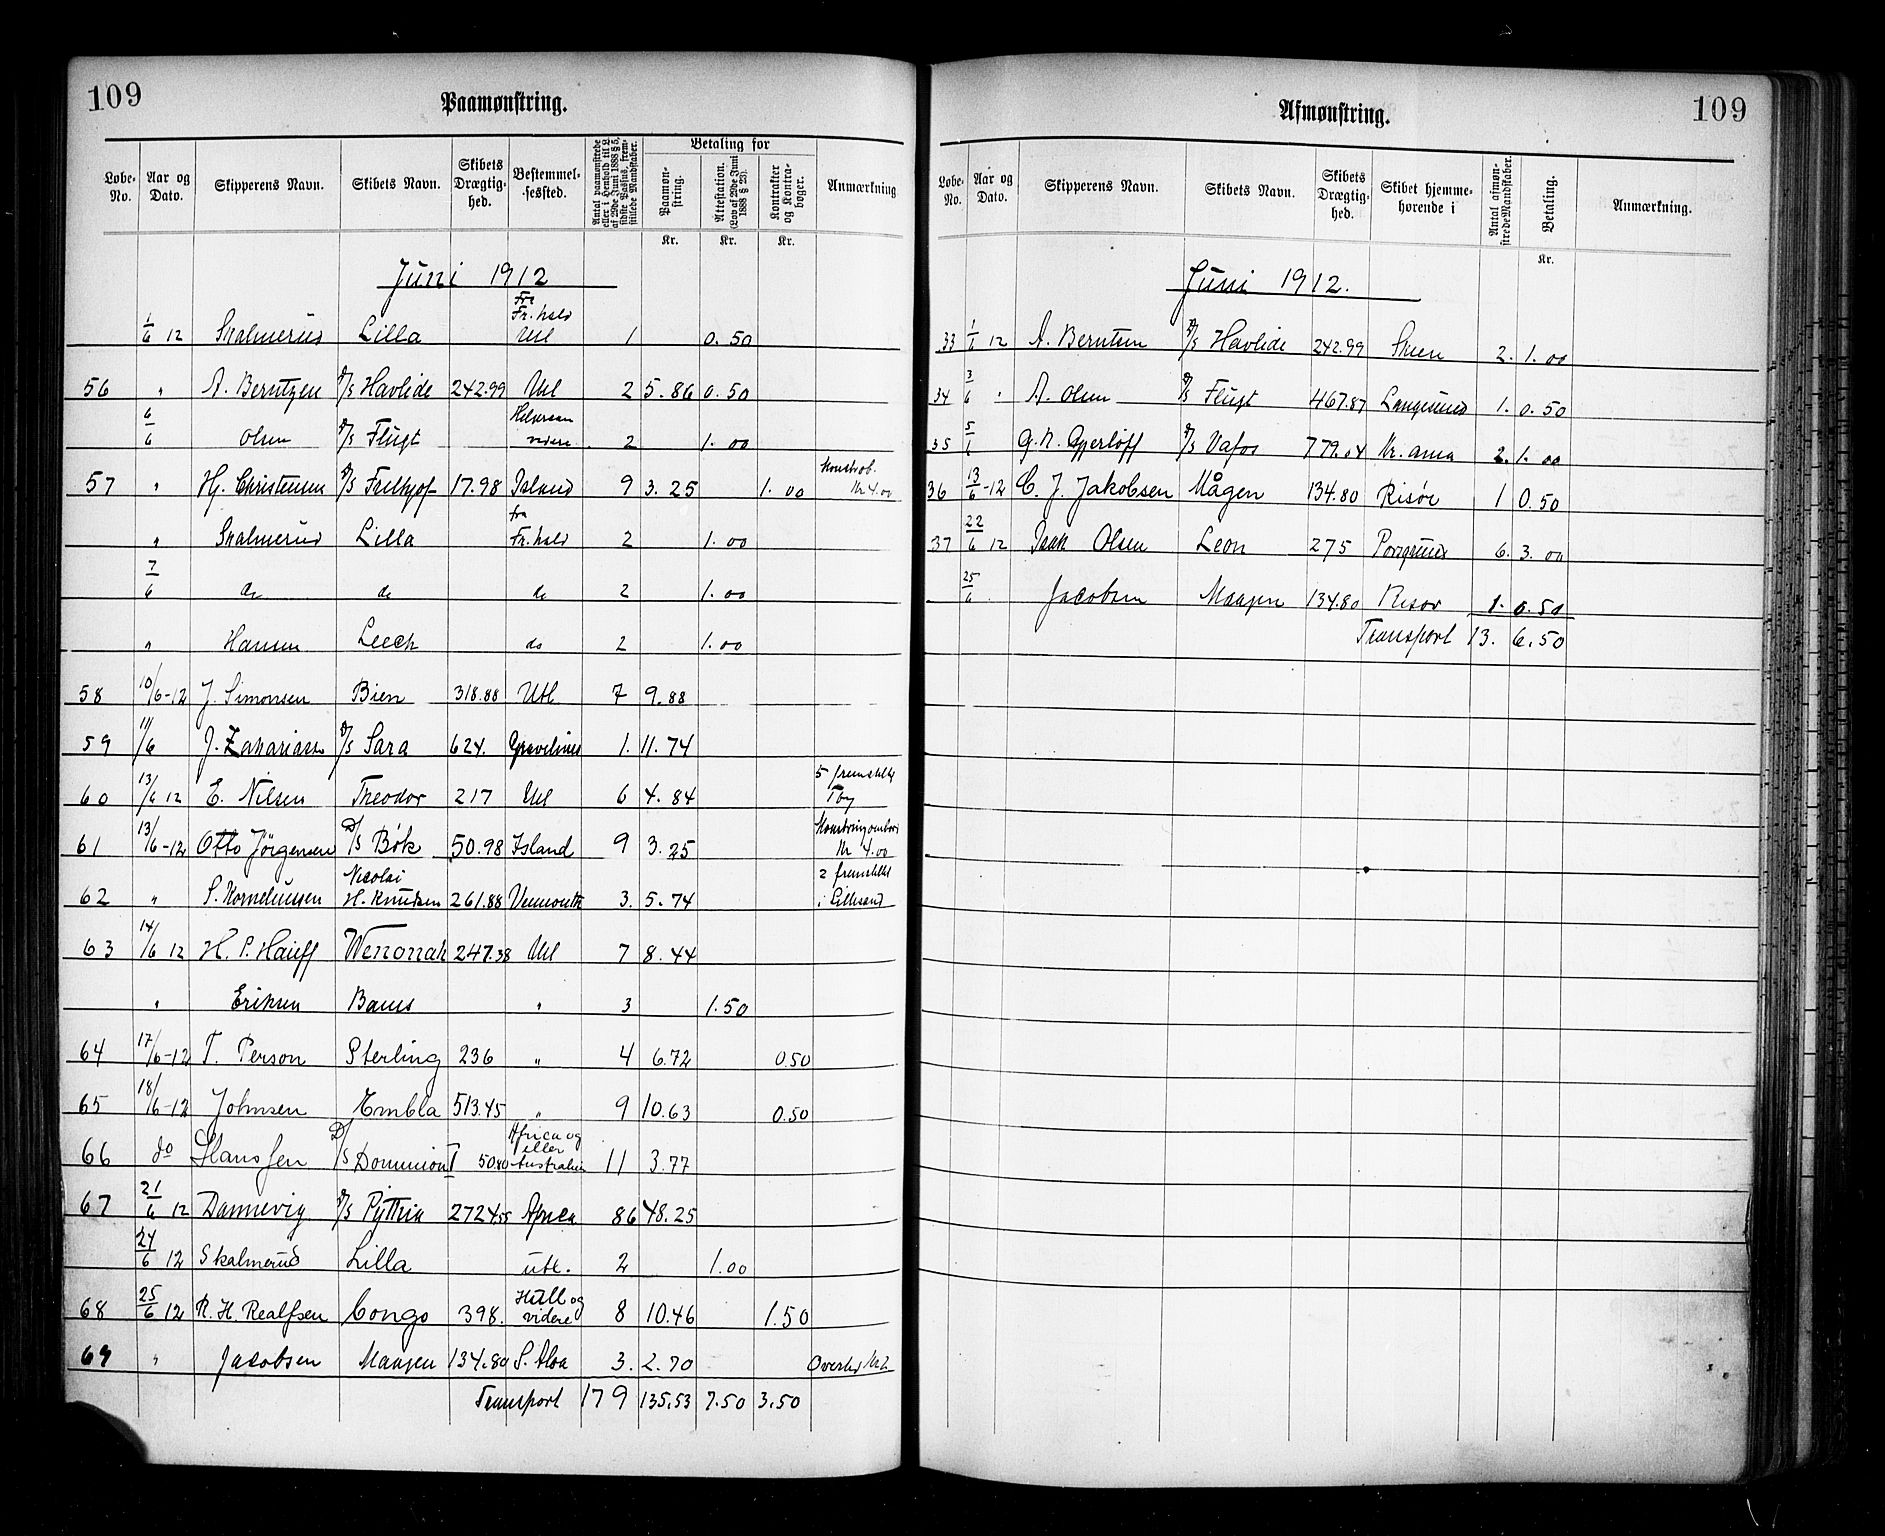 109
Paamønstring.
Løbe-No. | Aar og Dato. | Skipperens Navn. | Skibets Navn. | Skibets Drægtig-hed. | Bestemmel-sessted. | Antal paamønstrede eller i Henhold til L. af 29de Juni 1888 § 5, sidste Passus, frem-stillede Mandskaber. | Betaling for | Paamøn-string. Kr. | Attestation. (Lov af 29de Juni 1888 § 29). Kr. | Kontrakter og Kontra-bøger. Kr. | Anmærkning
Juni 1912
1/6 12 Skalmerud Lilla Fra Fr.hald Utl 1 0.50
56 " A. Berntzen D/S Havlide 242.99 Utl 2 5.86 0.50
6/6 Olsen D/S Flugt videre 2 1.00
57 " Hj. Christensen D/S 17.98 Island 9 3.25 1.00 Kr 4.00
" Skalmerud Lilla fra Fr.hald 2 1.00
7/6 do do do 2 1.00
" Hansen Leech do 2 1.00
58 10/6-12 J. Simonsen Bien 318.88 Utl 7 9.88
59 11/6 J. Zakariasen D/S Sara 624. Gravelines 1. 11.74
60 13/6 12 E. Nilsen Theodor 217 Utl 6 4.84 5 fremstillt Tby
61 13/6-12 Otto Jörgensen D/S Bök 50.98 Island 9 3.25 Kr 4.00
62 " S. Korneliussen Nicolai H. Knudsen 261.88 3. 5.74 2 fremstillt i Lillesand
63 14/6 12 H. P. Hauff Wenonah 247.38 Utl 7 8.44
" Eriksen " 3 1.50
64 17/6-12 T. Person Sterling 236 " 4 6.72 0.50
65 18/6-12 Johnsen Embla 513.45 " 9 10.63 0.50
66 do Hanssen D/S Dominion I 50.40 Africa og eller Australien 11 3.77
67 21/6 12 Dannevig D/S Pythia 2724.55 Africa 86 48.25
24/6 12 Skalmerud Lilla utl. 2 1.00
68 25/6 12 R. H. Realfsen Congo 398. Hull og videre 8 10.46 1.50
69 " Jacobsen Maagen 134.80 S. Aloa 3. 2.70
Transport 179 135.53 7.50 3.50
109
Afmønstring.
Løbe-No. | Aar og Dato. | Skipperens Navn. | Skibets Navn. | Skibets Drægtig-hed. | Skibet hjemme-hørende i | Antal afmøn-strede Mandskaber. | Betaling. Kr. | Anmærkning.
Juni 1912.
33 1/6 12 A. Berntsen D/S Havlide 242.99 Skien 2. 1.00
34 3/6 " A. Olsen D/S Flugt 467.87 Langesund 1. 0.50
35 5/6 G. N. Gjerløff D/S Vafos 779.04 Kr.ania 2. 1.00
36 13/6-12 C. J. Jakobsen Mågen 134.80 Risör 1 0.50
37 22/6 12 Isak Olsen Leon 275 Porsgrund 6. 3.00
25/6 Jacobsen Maagen 134.80 Risør 1. 0.50
Transport 13. 6.50